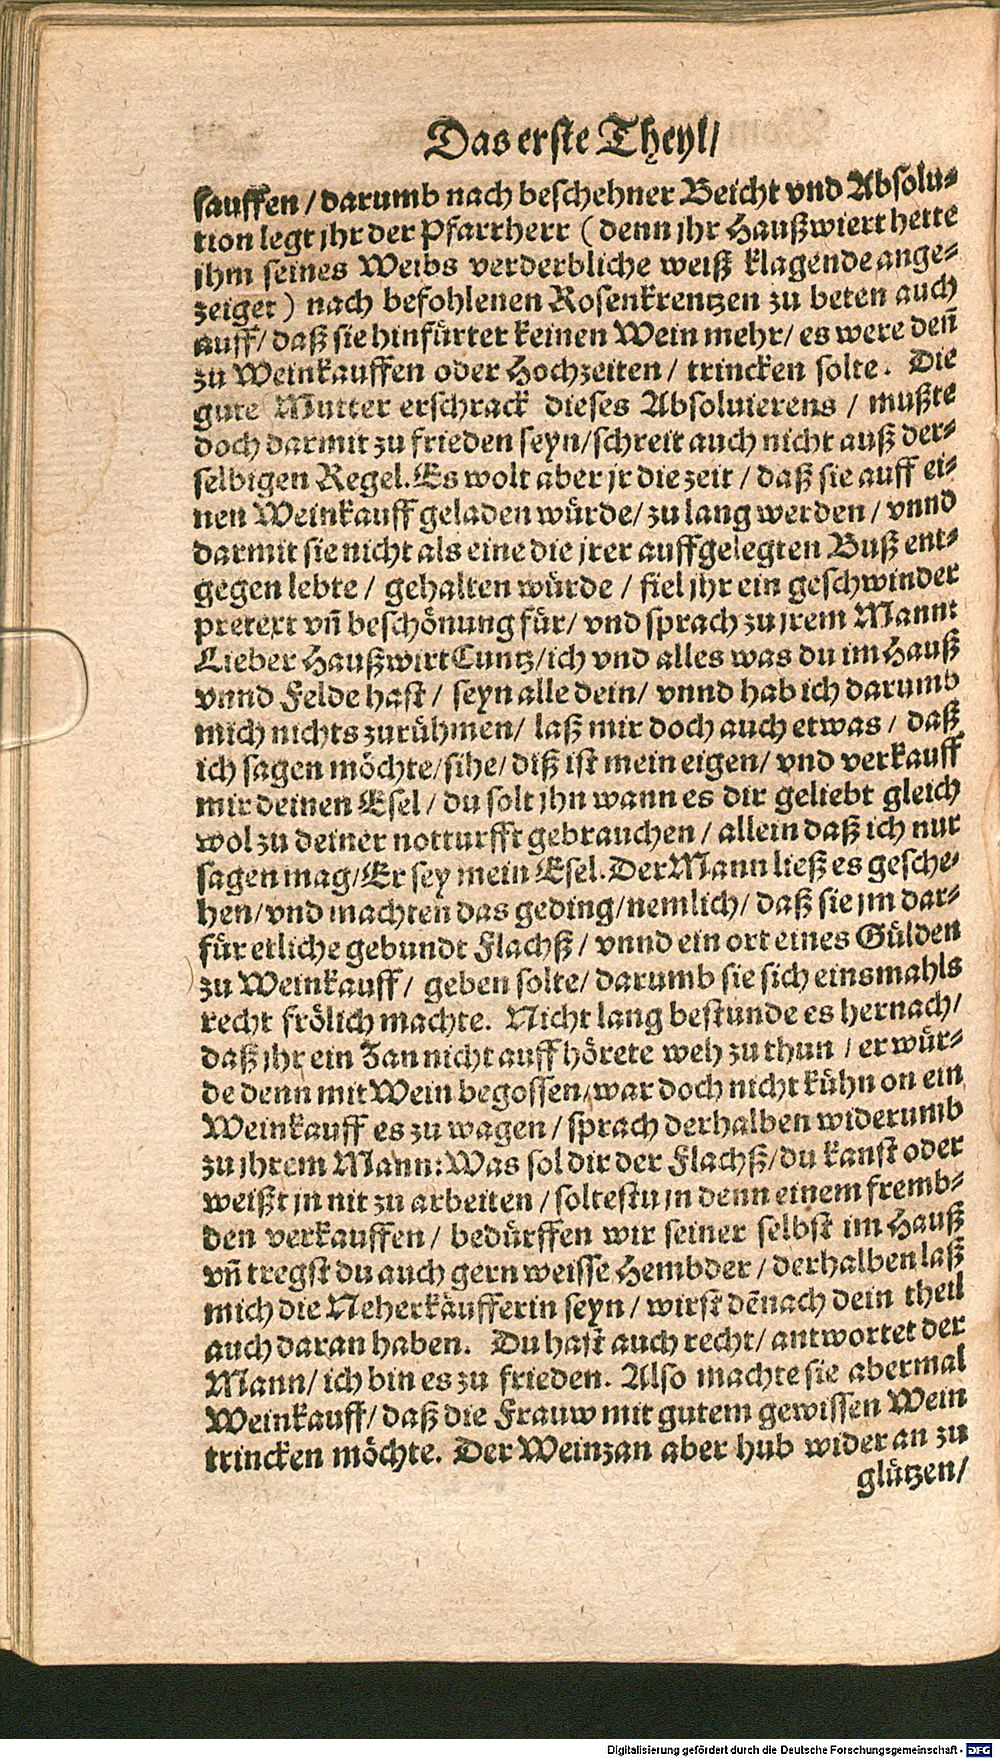 Das erste Theyl/
sauffen / darumb nach beschehner Beicht vnd Absolu-
tion legt jhr der Pfarrherr ( denn jhr Haußwiert hette
jhm seines Weibs verderbliche weiß klagende ange-
zeiget ) nach befohlenen Rosenkrentzen zu beten auch
auff/ daß sie hinfürter keinen Wein mehr/ es were deñ
zu Weinkauffen oder Hochzeiten/ trincken solte. Die
gute Mutter erschrack dieses Absoluierens / mußte
doch darmit zu frieden seyn/schreit auch nicht auß der-
selbigen Regel. Es wolt aber jr die zeit / daß sie auff ei-
nen Weinkauff geladen würde/ zu lang werden / vnnd
darmit sie nicht als eine die jrer auffgelegten Buß ent-
gegen lebte / gehalten würde / fiel jhr ein geschwinder
pretext vñ beschönung für/ vnd sprach zu jrem Mann:
Lieber Haußwirt Cuntz/ich vnd alles was du im Hauß
vnnd Felde hast / seyn alle dein/ vnnd hab ich darumb
mich nichts zurühmen/ laß mir doch auch etwas / daß
ich sagen möchte/sihe/ diß ist mein eigen/ vnd verkauff
mir deinen Esel / du solt jhn wann es dir geliebt gleich
wol zu deiner notturfft gebrauchen / allein daß ich nur
sagen mag/Er sey mein Esel. Der Mann ließ es gesche-
hen/vnd machten das geding/nemlich/ daß sie jm dar-
für etliche gebundt Flachß / vnnd ein ort eines Gülden
zu Weinkauff/ geben solte/ darumb sie sich einsmahls
recht frölich machte. Nicht lang bestunde es hernach/
daß jhr ein Zan nicht auff hörete weh zu thun / er wür-
de denn mit Wein begossen/war doch nicht kühn on ein
Weinkauff es zu wagen / sprach derhalben widerumb
zu jhrem Mann: Was sol dir der Flachß/du kanst oder
weißt jn nit zu arbeiten / soltestu jn denn einem fremb-
den verkauffen/ bedürffen wir seiner selbst im Hauß
vñ tregst du auch gern weisse Hembder / derhalben laß
mich die Neherkäufferin seyn / wirst dẽnach dein theil
auch daran haben. Du hast auch recht/ antwortet der
Mann/ ich bin es zu frieden. Also machte sie abermal
Weinkauff/ daß die Frauw mit gutem gewissen Wein
trincken möchte. Der Weinzan aber hub wider an zu
glützen/
Digitalisierung gefördert durch die Deutsche Forschungsgemeinschaft - DFG